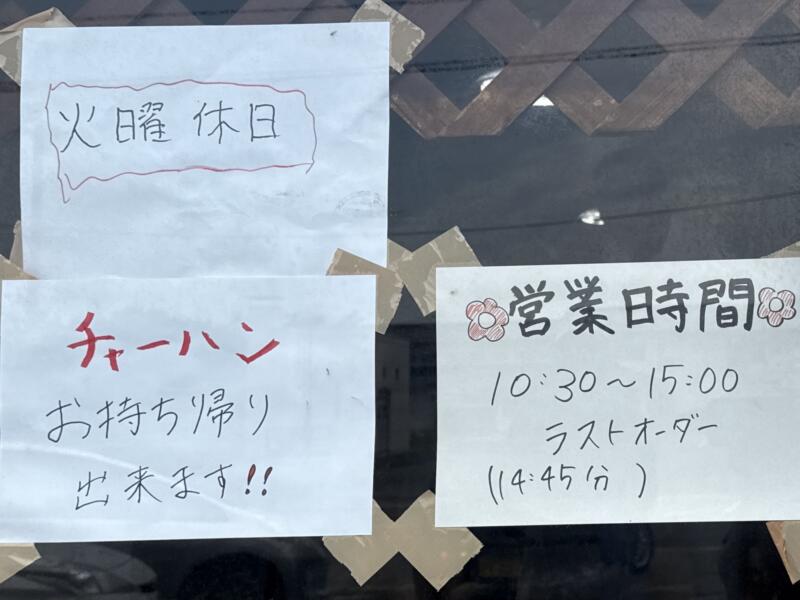 火曜 休日
チャーハン
お持ち帰り
出来ます!!
営業時間
10:30～15:00
ラストオーダー
(14:45分 )